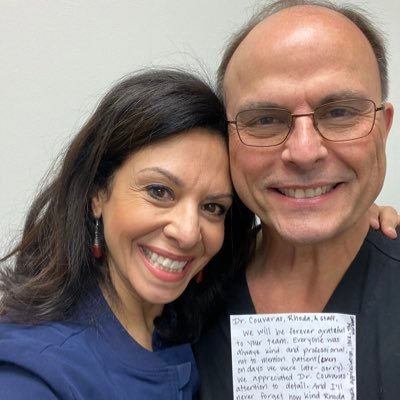 Dr. Couvaras, Rhoda, & staff,
We will be forever grateful
to your team. Everyone was
always kind and professional
not to mention patient (even
on days we were late - sorry).
We appreciated Dr. Couvaras'
attention to detail. And I'll
never forget how kind Rhoda